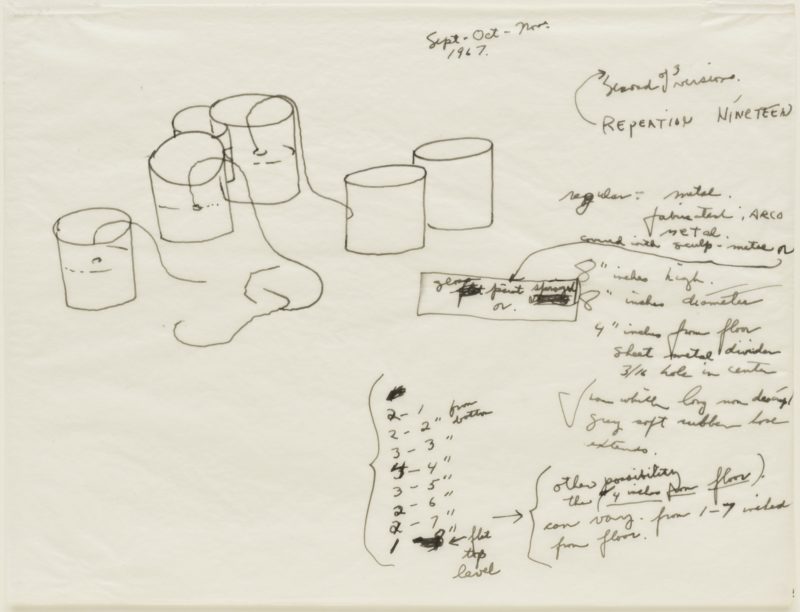 Sept - Oct - Nov.
1967.
Second of 3 versions.
REPEATION NINETEEN
regular: metal.
fabricated, ARCO
METAL.
covered with sculp-metal or
gray
flat paint sprayed
or.
8" inches high.
8" inches diameter
4" inches from floor
sheet metal divider
3/16 hole in center
from which long non descript
grey soft rubber hose
extends.
2 - 1 from bottom
2 - 2"
3 - 3 "
3 - 4 "
3 - 5 "
2 - 6 "
2 - 7 "
1 8 ← flat
top
level
other possibility
the (4 inches from floor).
can vary. from 1-7 inches
from floor.